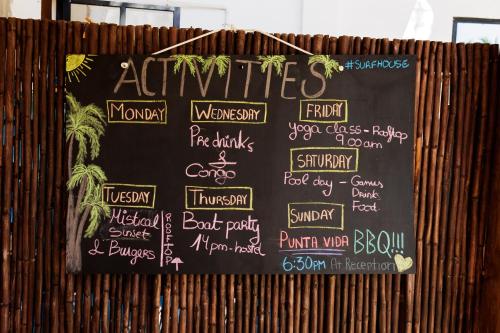 ACTIVITIES
#SURFHOUSE
MONDAY
TUESDAY
Mistical
Sunset
& Burgers
ROOFTOP
WEDNESDAY
Pre drinks
&
Congo
THURSDAY
Boat party
14pm-hostel
FRIDAY
yoga class - Rooftop
9:00 am
SATURDAY
Pool day - Games
Drink
Food
SUNDAY
PUNTA VIDA BBQ!!!
6:30PM At Reception